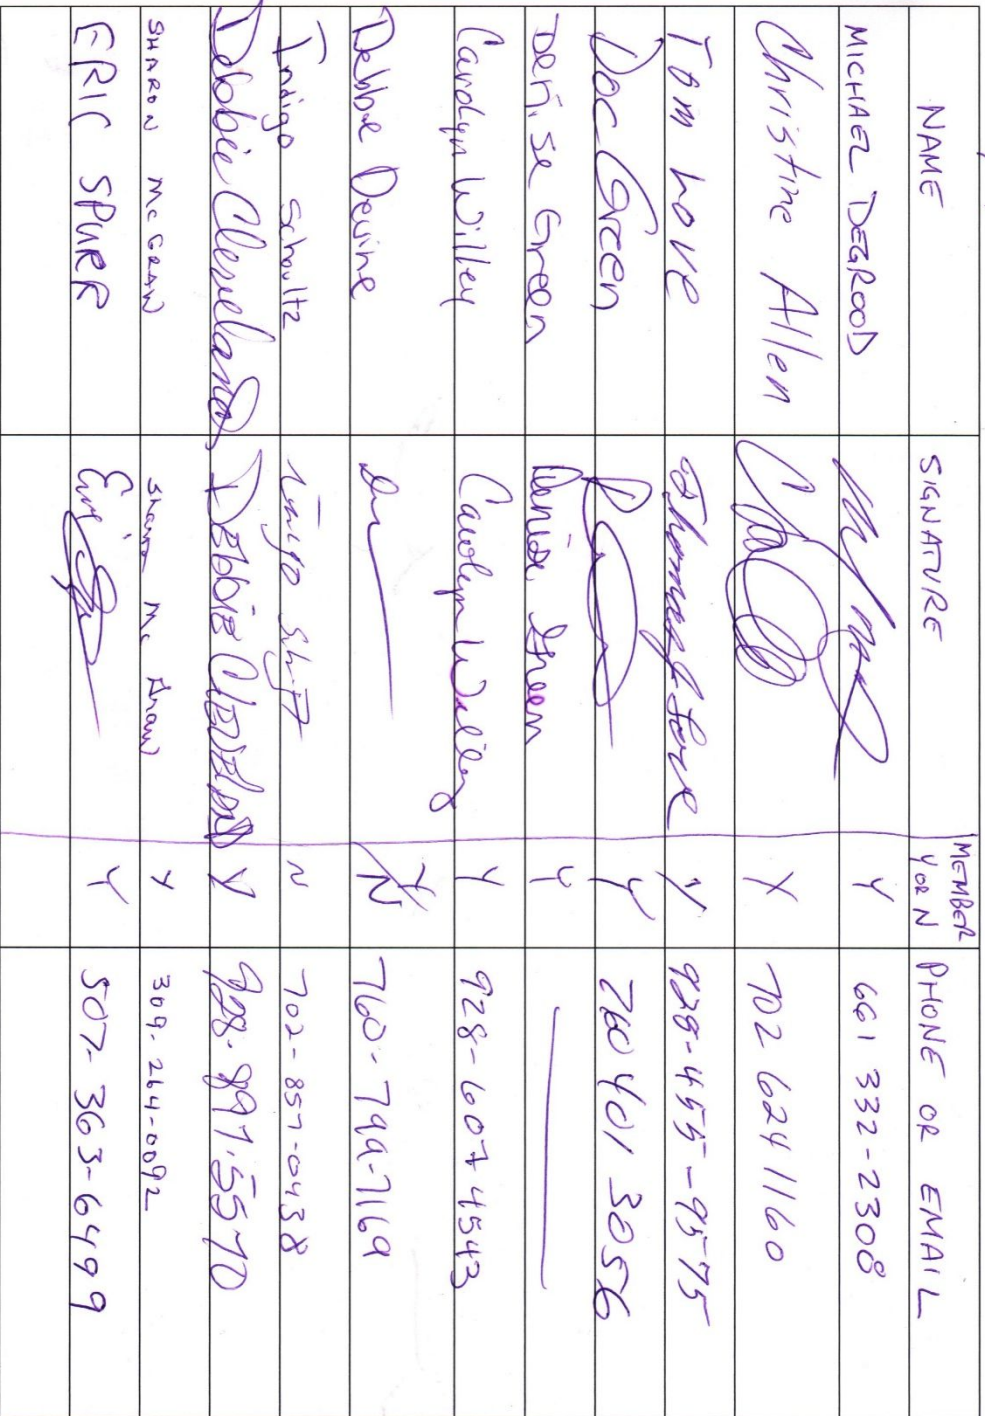 NAME SIGNATURE MEMBER Y or N PHONE OR EMAIL
MICHAEL DEGROOD Y 661 332-2308
Christine Allen Y 702 624 1160
Tom Love Thomas Love Y 928-455-9575
Doc Green Y 760 401 3056
Denise Green Denise Green Y
Carolyn Willey Carolyn Willey Y 928-607 4543
Debbie Devine Y N 760-799-7169
Indigo Schultz N 702-857-0438
Debbie Cleveland DEbbiE ClEvElAnd Y 928-897-5570
SHARON McGRAW Sharon McGraw Y 309-264-0092
ERIC SPURR Eric Y 507-363-6499